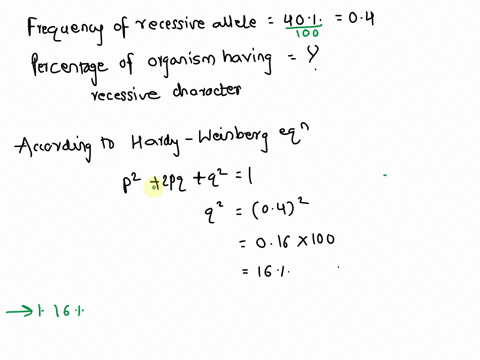 Frequency of recessive allele = 40·1. / 100 = 0.4
Percentage of organism having = ?
recessive character
According to Hardy-Weinberg eqⁿ
p² + 2pq + q² = 1
q² = (0.4)²
= 0.16 × 100
= 16·1.
→ 1. 16·1.